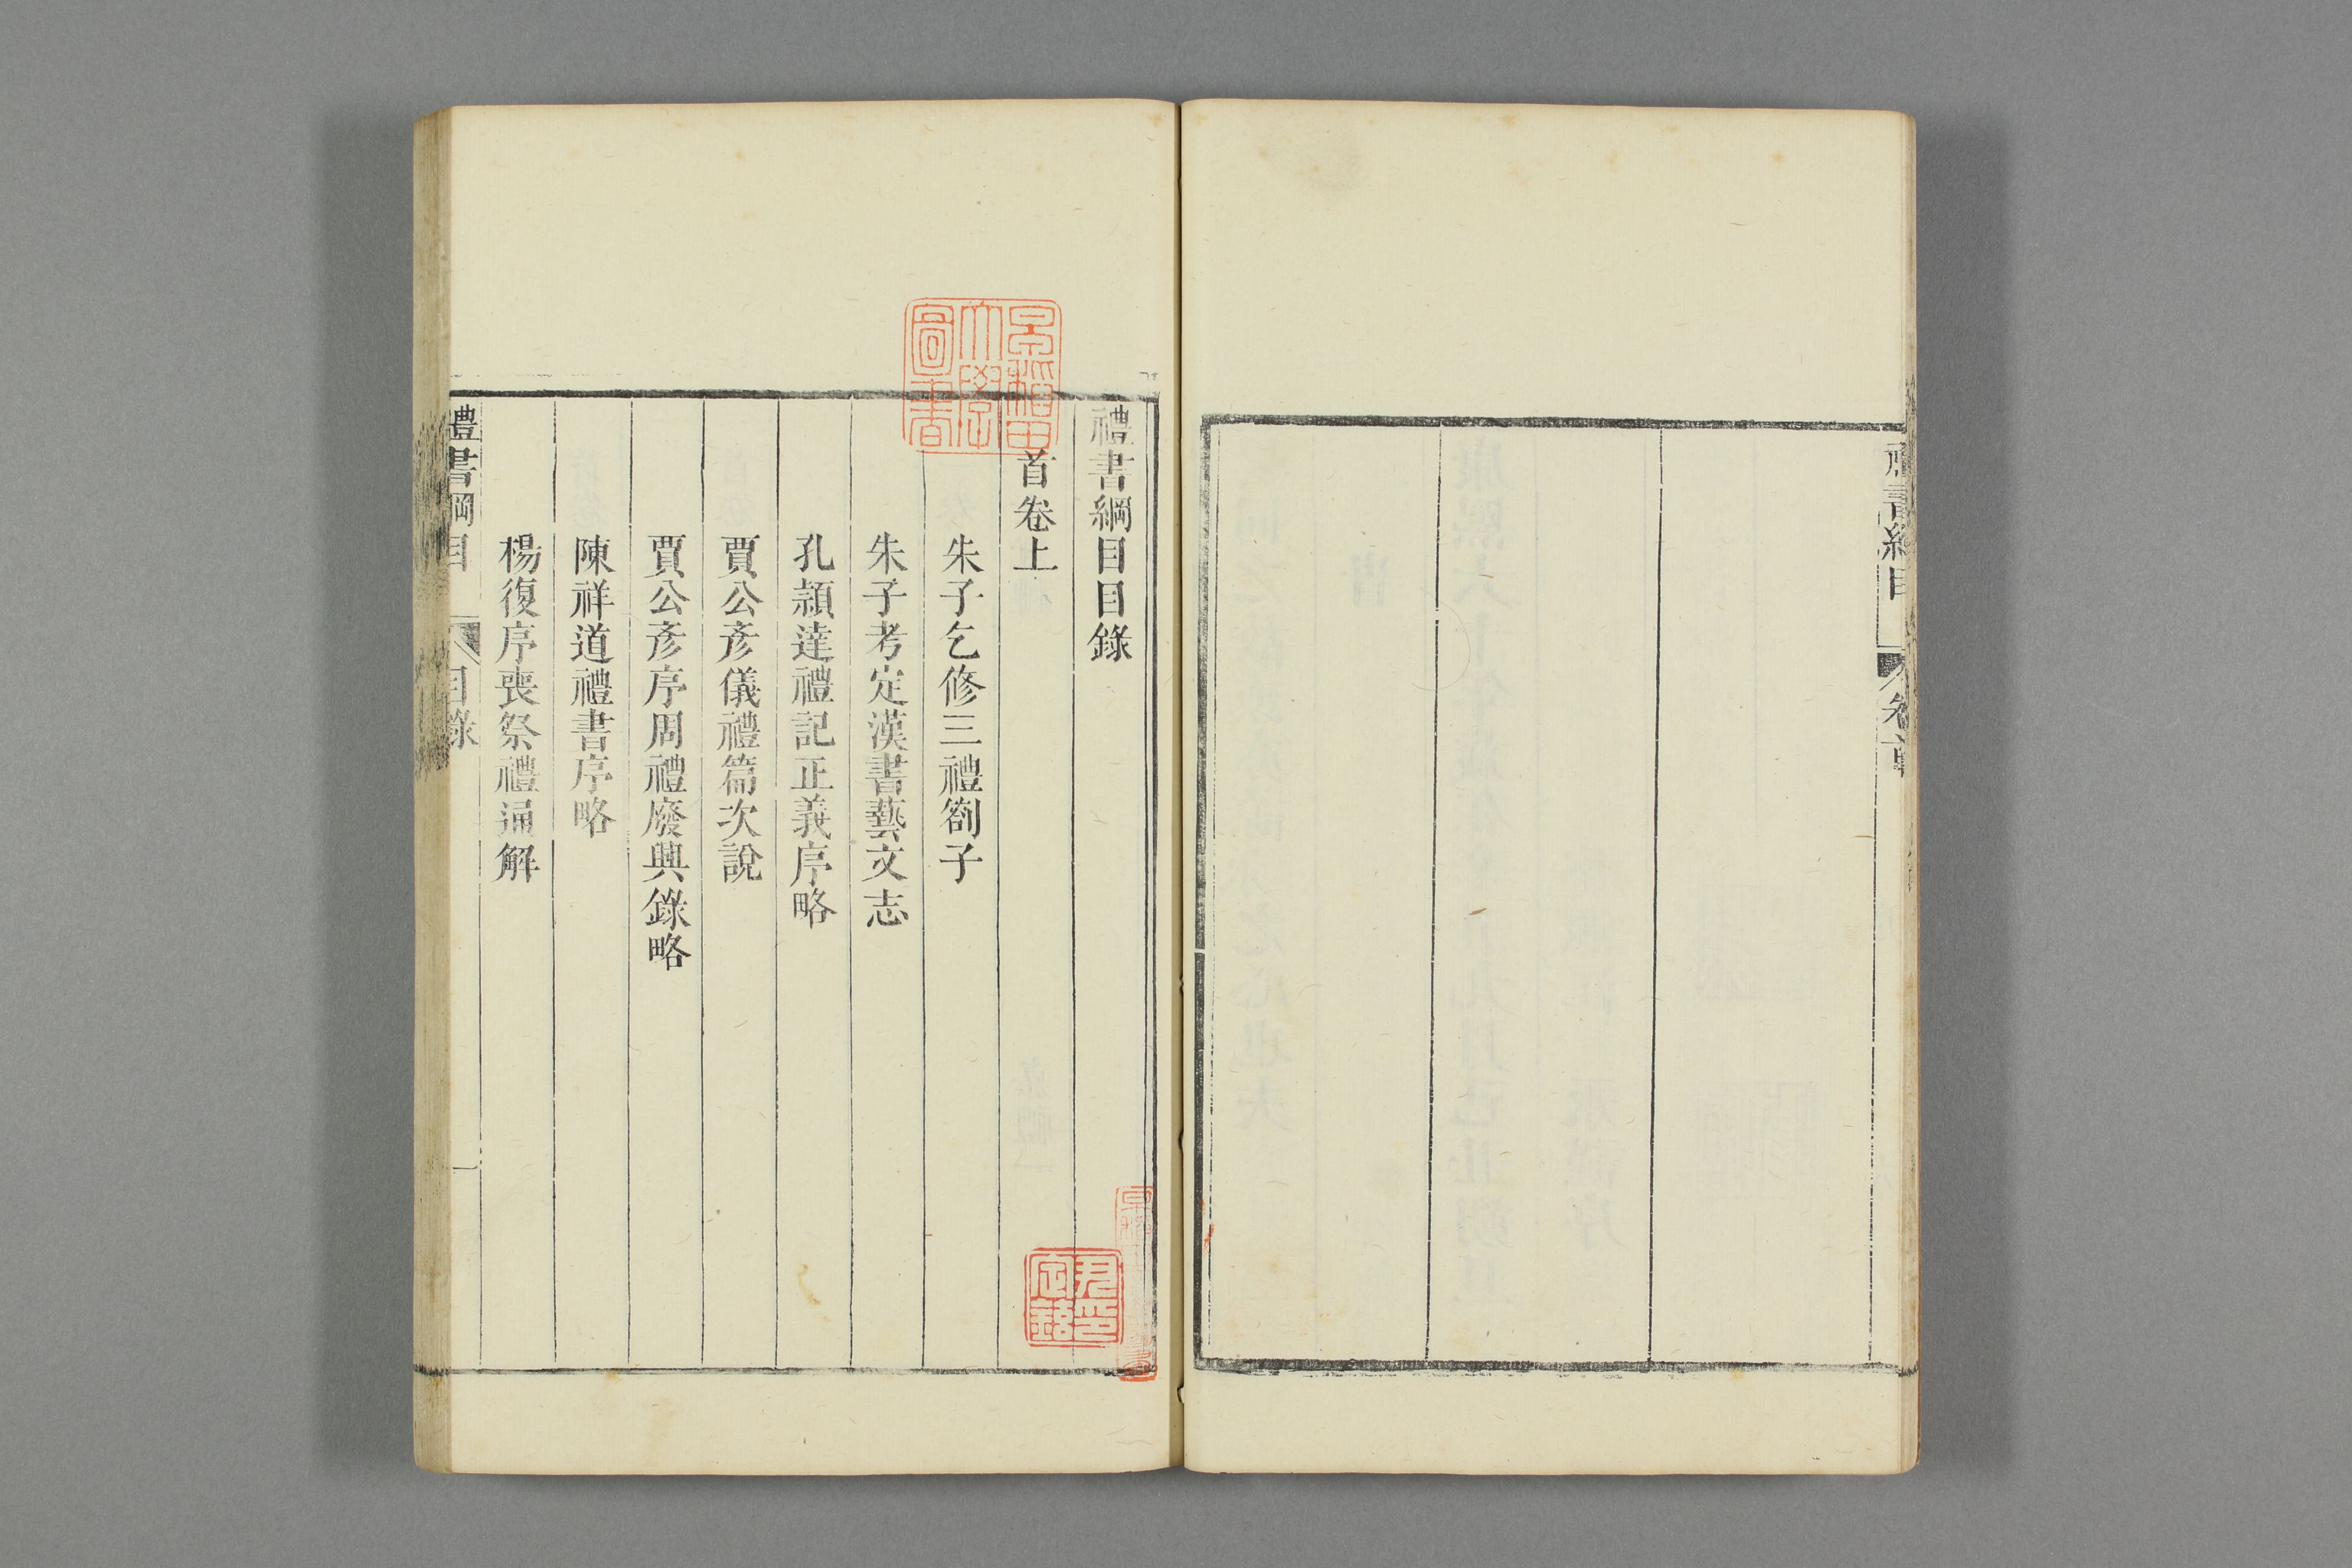 禮書綱目 卷首
禮書綱目目錄
首卷上
朱子乞修三禮劄子
朱子考定漢書藝文志
孔頴達禮記正義序略
賈公彥儀禮篇次說
賈公彥序周禮廢興錄略
陳祥道禮書序略
楊復序喪祭禮通解
禮書綱目 目錄 一
早稻田大學圖書